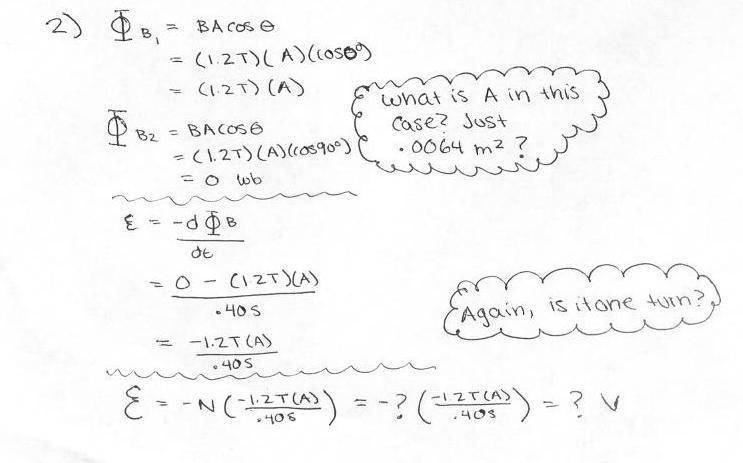 2) Φ B₁ = BA cos θ
= (1.2T)(A)(cos0°)
= (1.2T)(A)
What is A in this
case? Just
.0064 m² ?
Φ B2 = BA cosθ
= (1.2T)(A)(cos90°)
= 0 wb
ε = -dΦB
dt
= 0 - (1.2T)(A)
.40s
= -1.2T(A)
.40s
Again, is it one turn?
ε = -N(-1.2T(A)/.40s) = -?(-1.2T(A)/.40s) = ? V